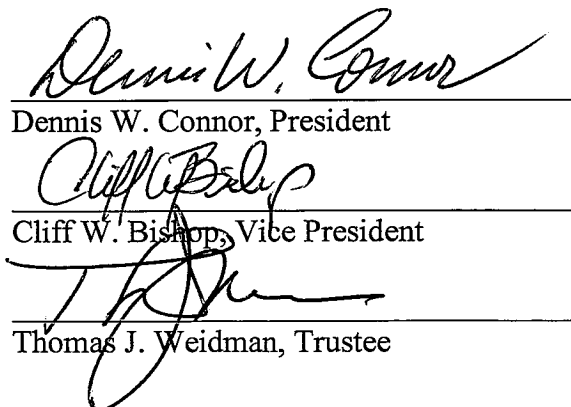 Dennis W. Connor
Dennis W. Connor, President
Cliff W Bishop
Cliff W. Bishop, Vice President
Thomas J. Weidman, Trustee